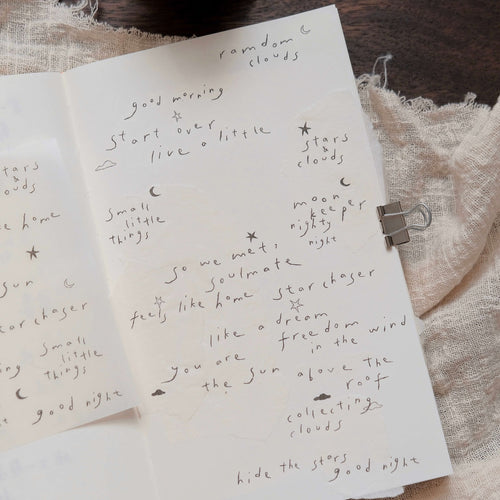 stars
&
clouds
home
sun
star chaser
small
little
things
good night
ramdom
clouds
good morning
start over
live a little
stars
&
clouds
small
little
things
moon
keeper
nighty
night
so we met,
soulmate
feels like home
star chaser
like a dream
freedom
in the wind
you are
the sun above the
roof
collecting
clouds
hide the stars
good night